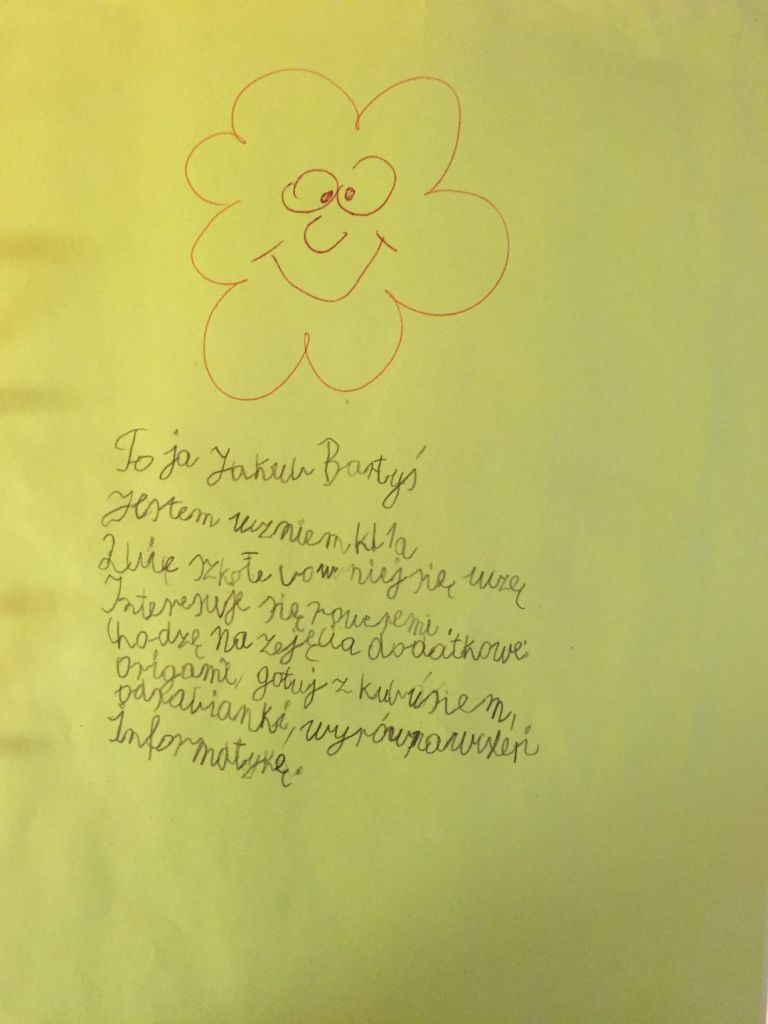 To ja Jakub Bartyś
Jestem uczniem kl 1a
Lubię szkołe bo w niej się uczę
Interesuje się
Chodzę na zajęcia dodatkowe:
origami, gotuj z kubusiem,
wyrównawcze
Informatykę.